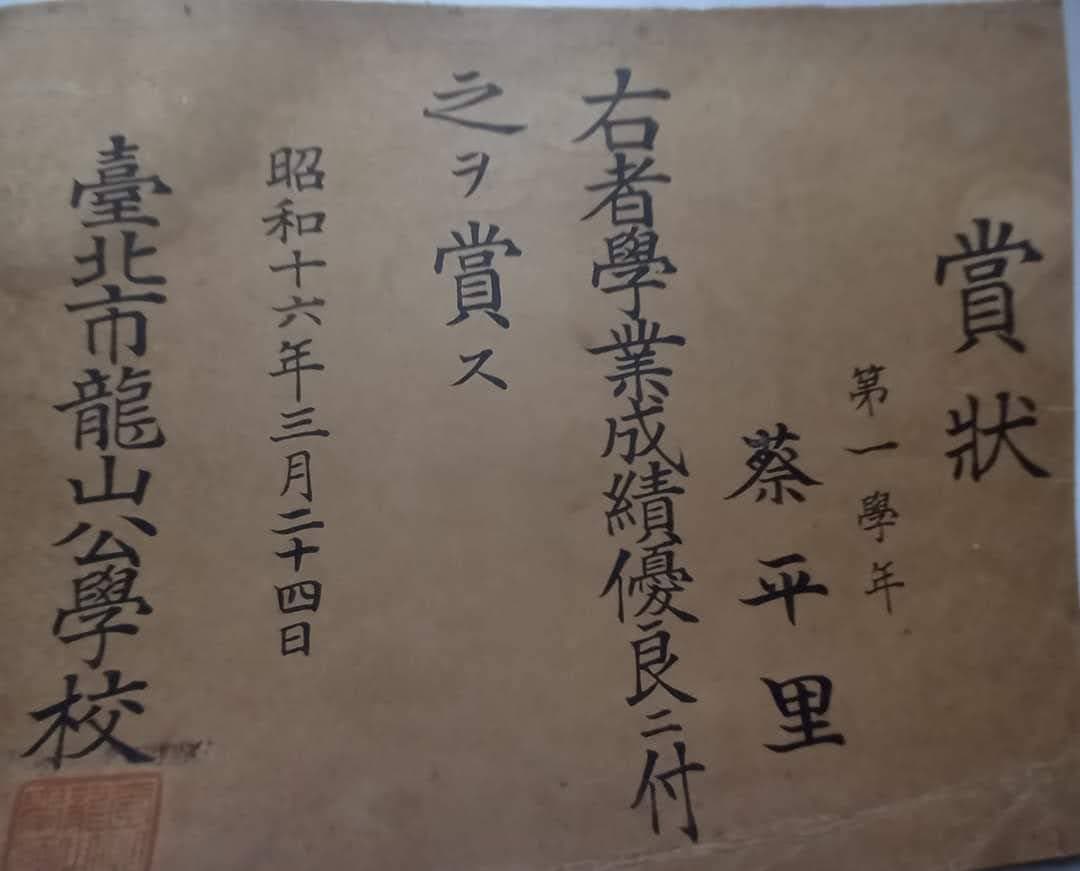 賞狀
第一學年
蔡平里
右者學業成績優良ニ付
之ヲ賞ス
昭和十六年三月二十四日
臺北市龍山公學校